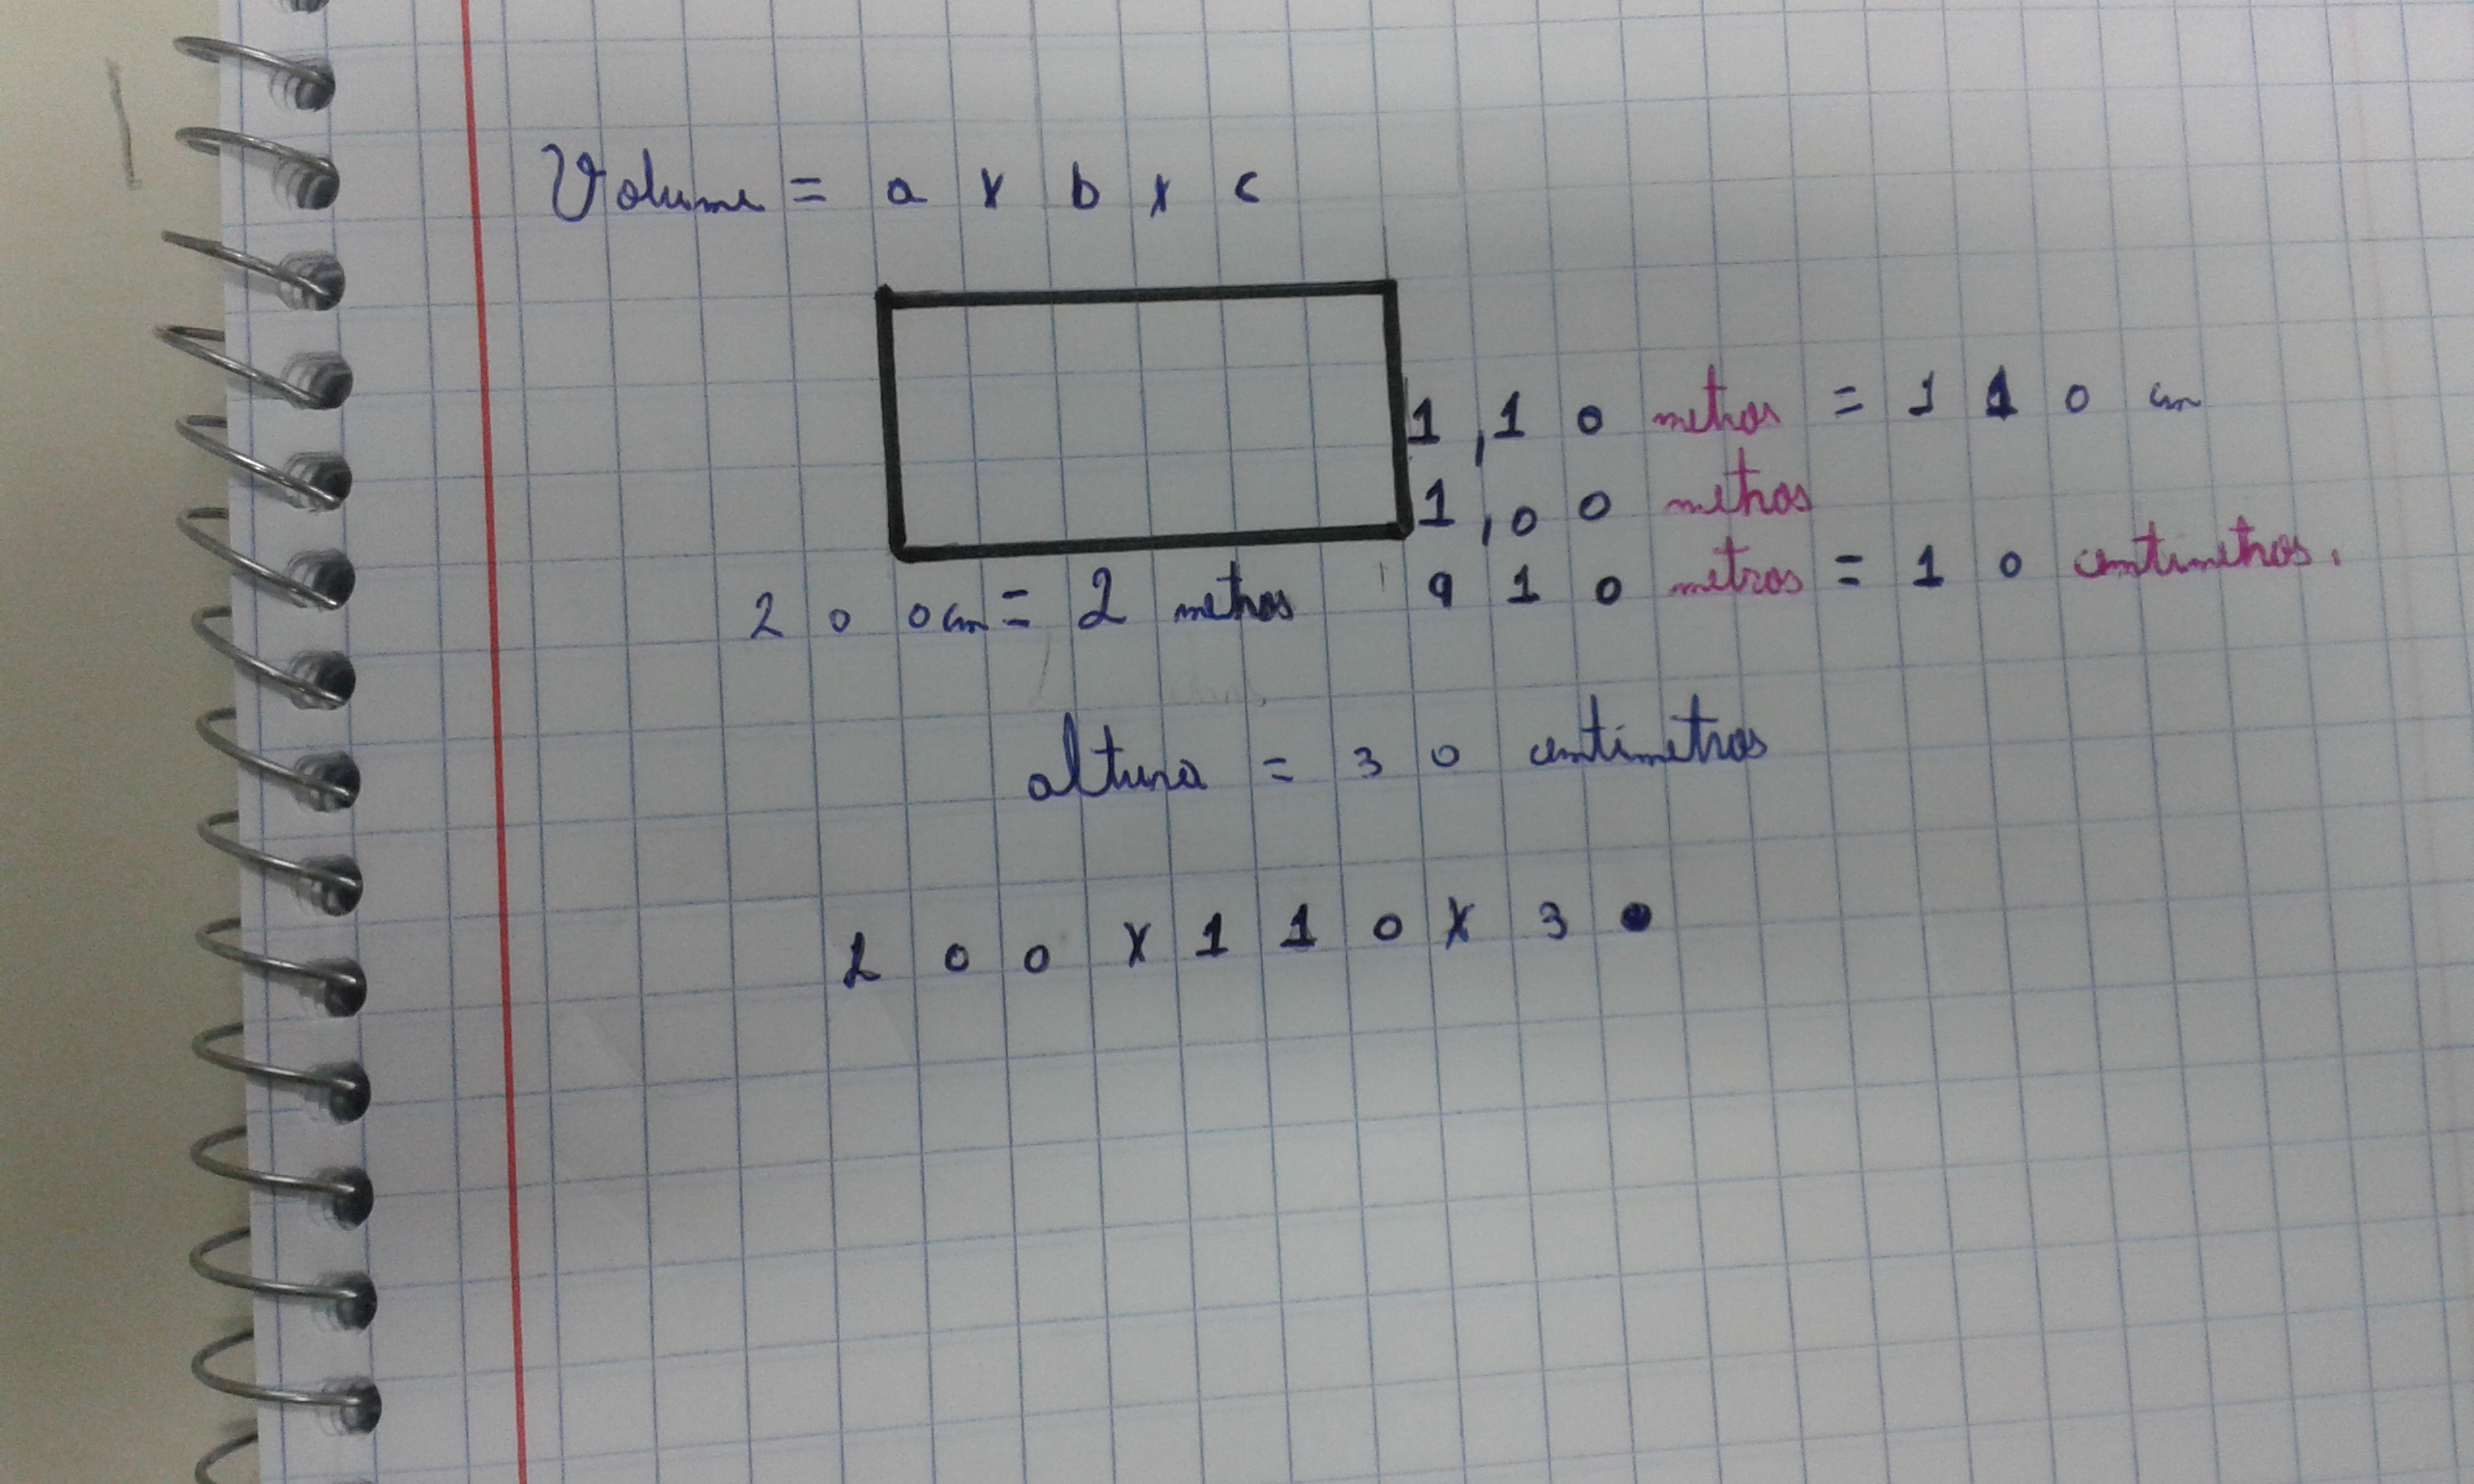 Volume = a x b x c
1,10 metros = 110 cm
1,00 metros
910 metros = 10 centimetros.
200cm = 2 metros
altura = 30 centimetros
200 x 110 x 30